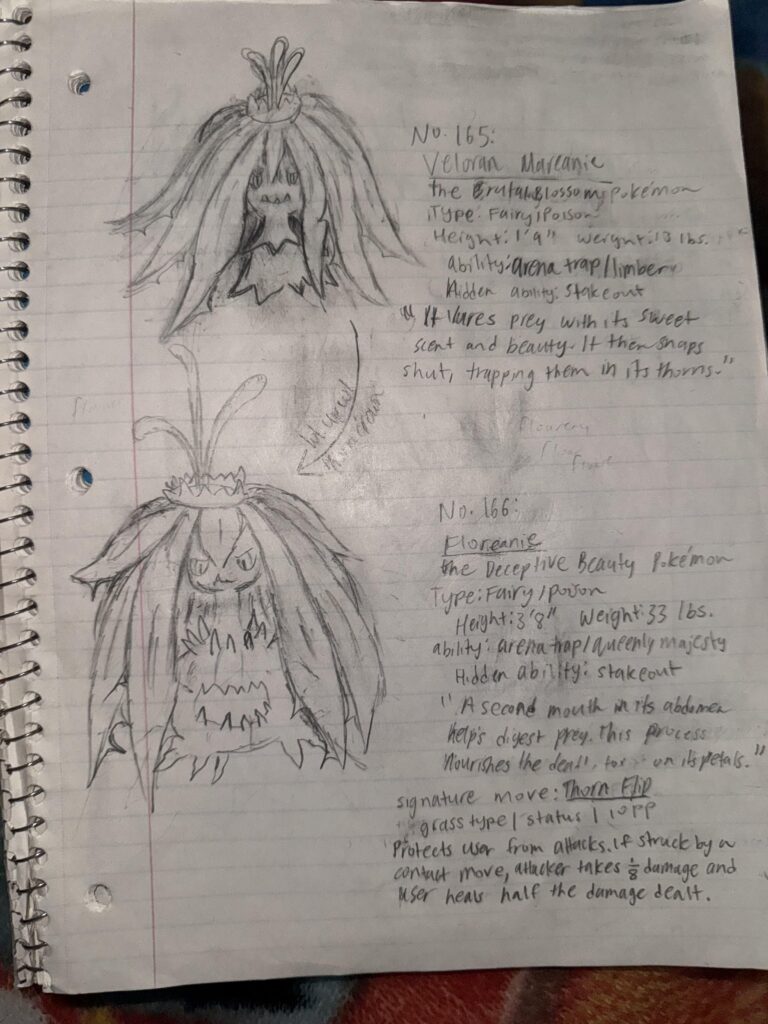 No. 165:
Veloran Mareanie
the Brutal Blossom pokémon
Type: Fairy/Poison
Height: 1'9" weight: 13 lbs.
ability: arena trap/limber
Hidden ability: Stakeout
"It lures prey with its sweet
scent and beauty. It then snaps
shut, trapping them in its thorns."
No. 166:
Floreanie
the Deceptive Beauty Pokémon
Type: Fairy/poison
Height: 3'8" Weight: 33 lbs.
ability: arena trap/queenly majesty
Hidden ability: stakeout
"A second mouth in its abdomen
helps digest prey. This process
nourishes the on its petals."
signature move: Thorn Flip
grass type / status / 10 PP
Protects user from attacks. If struck by a
contact move, attacker takes 1/8 damage and
User heals half the damage dealt.